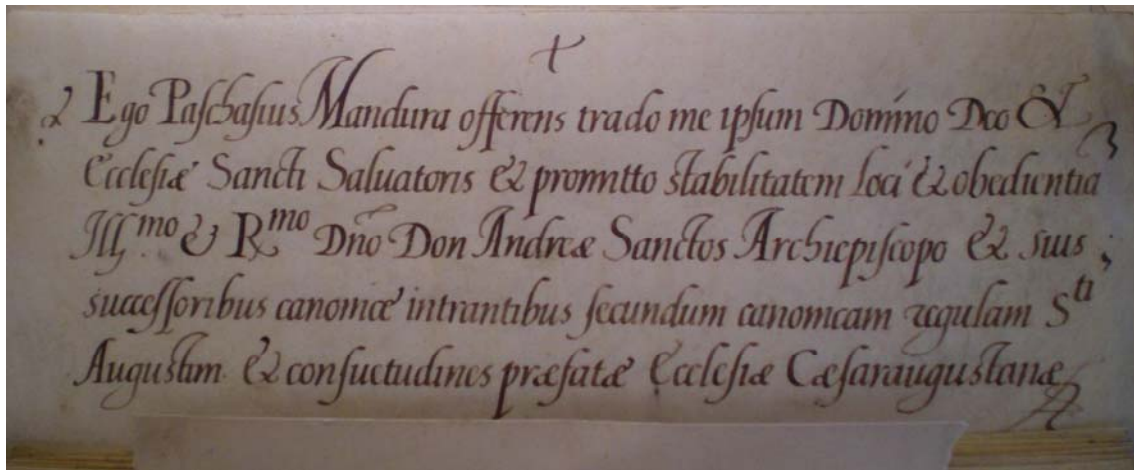 +
Ego Paschasius Mandura offerens trado me ipsum Domino Deo &
Ecclesiæ Sancti Saluatoris & promitto stabilitatem loci & obedientia
Ill.mo & R.mo Dño Don Andreæ Sanctos Archiepiscopo & suis
successoribus canonicæ intrantibus secundum canonicam regulam S.ti
Augustini & consuetudines præfatæ Ecclesiæ Cæsaraugustanæ